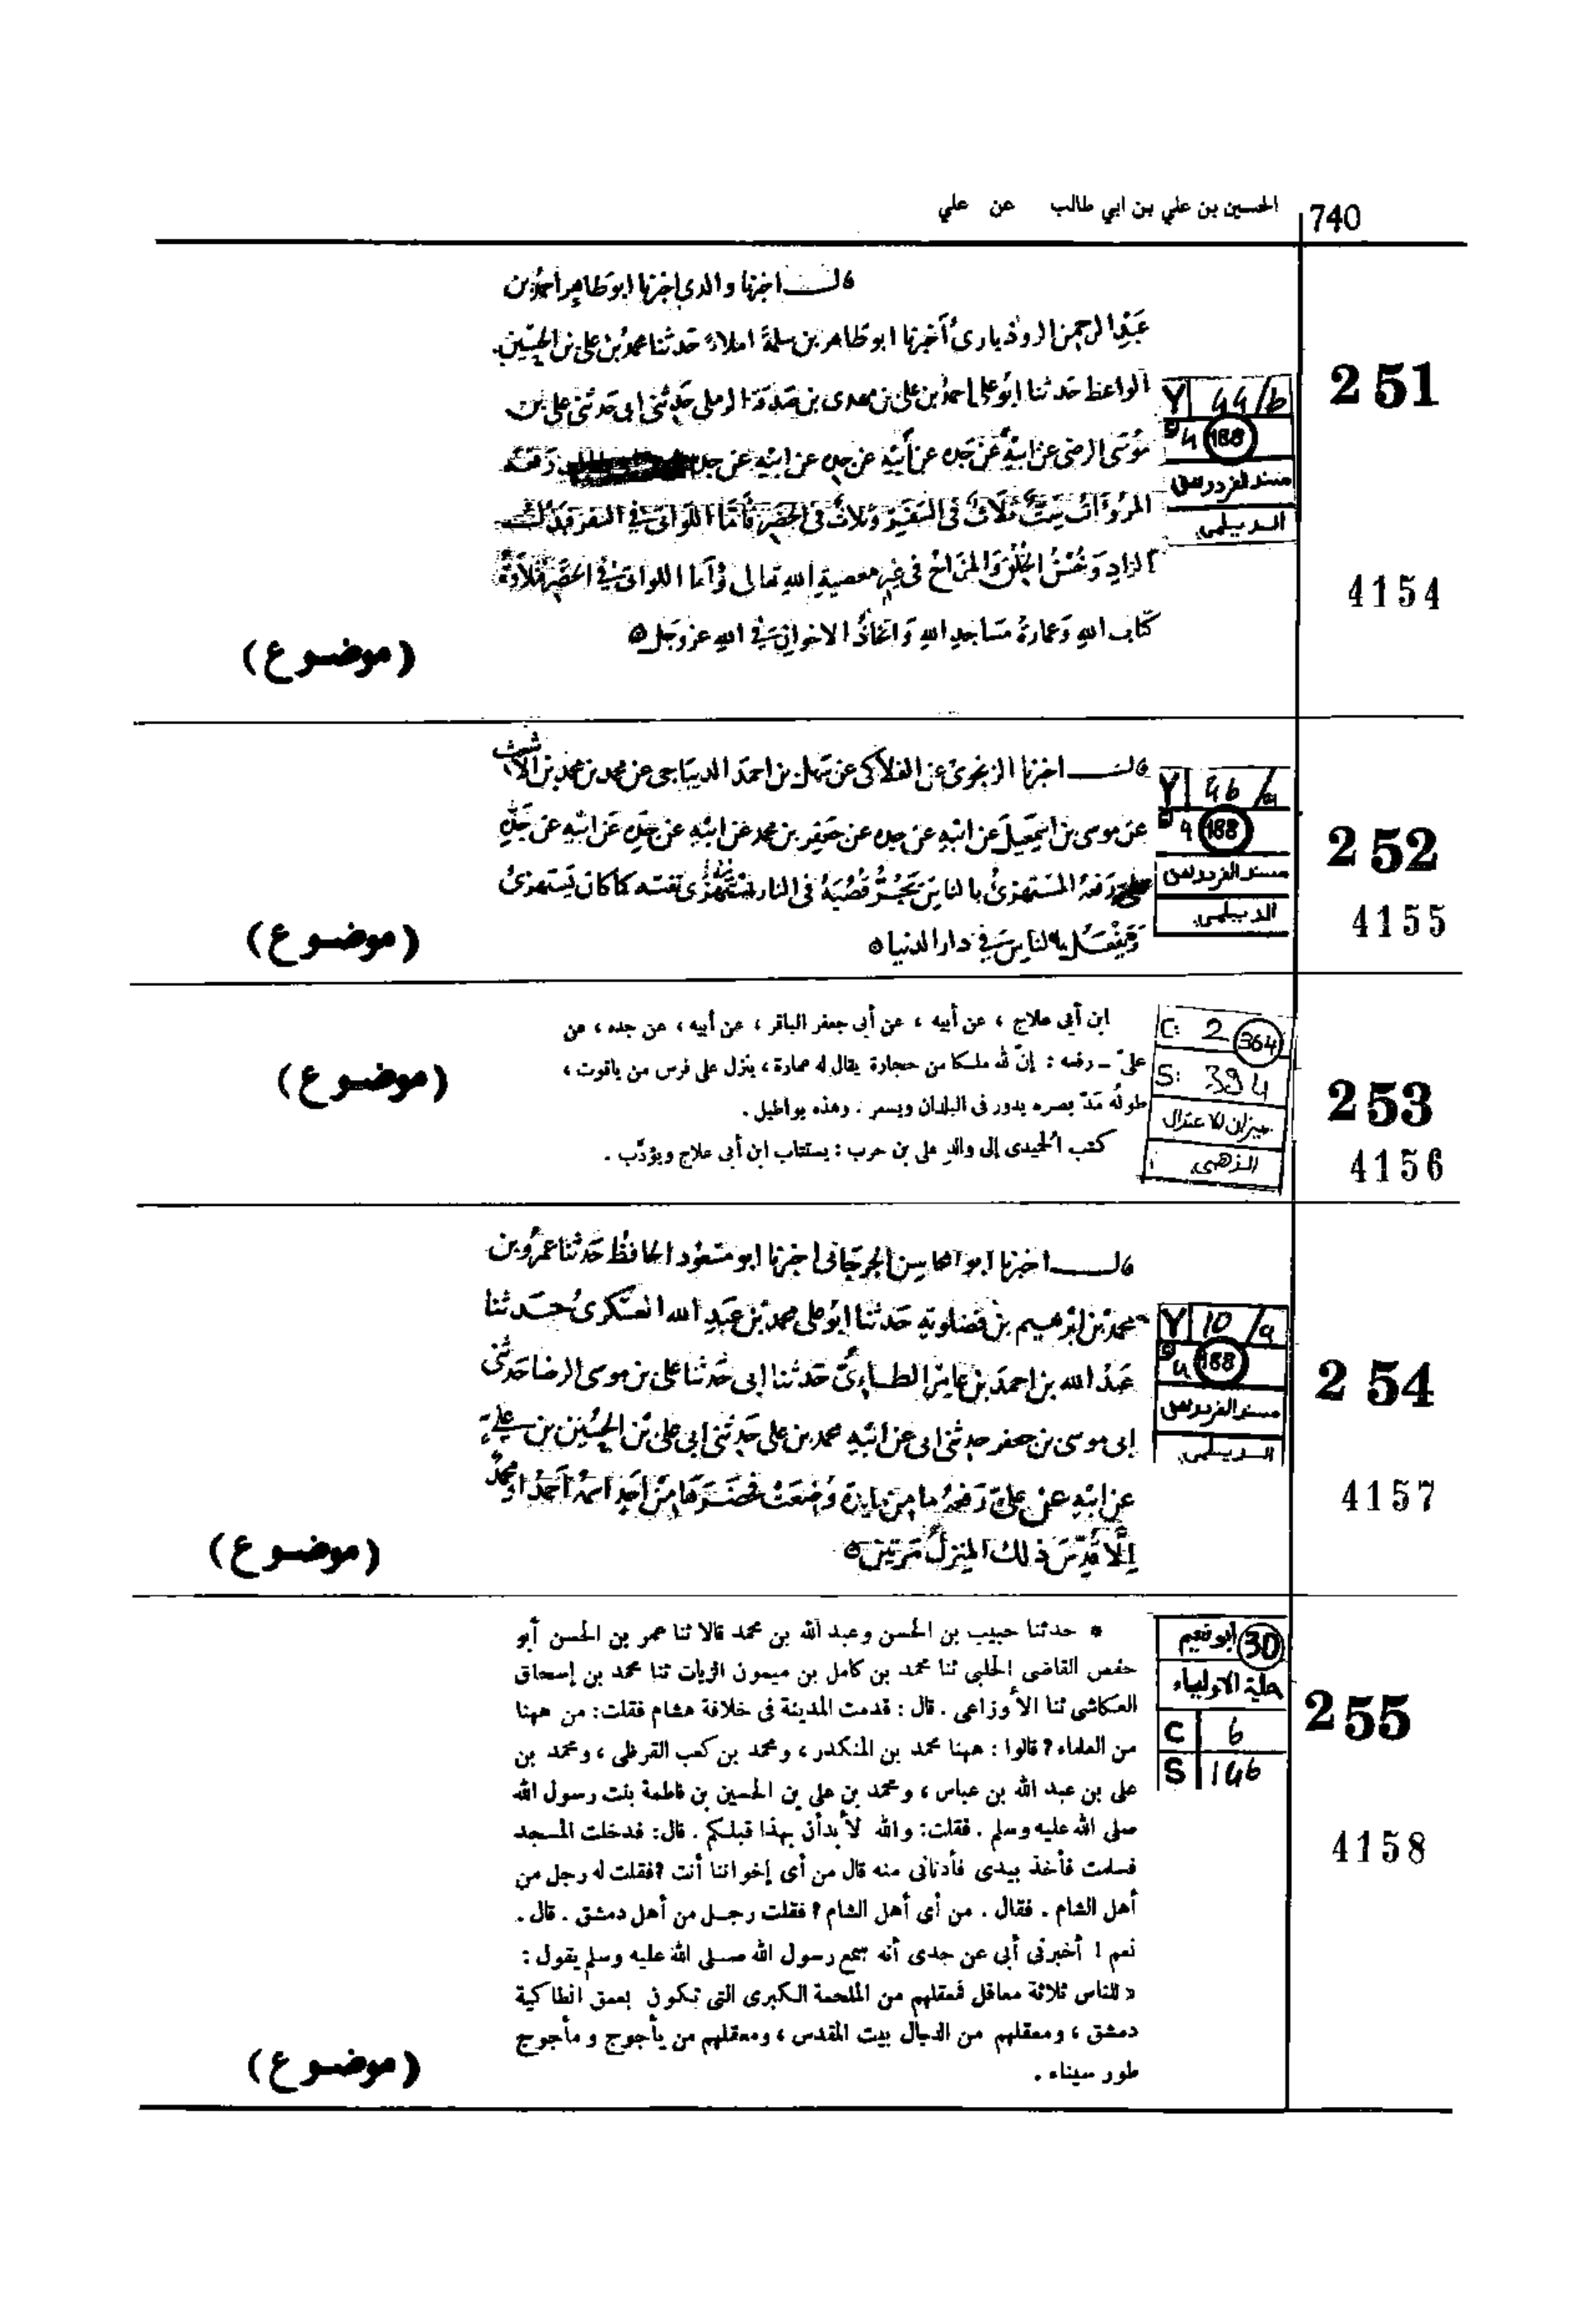 740 الحسين بن علي بن ابي طالب عن علي
251
Y 44/b
4 188
مسند الفردوس
الديلمي
4154
قال اخبرنا والدي اخبرنا ابو طاهر احمد بن
عبد الرحمن الروذباری أخبرنا ابو طاهر بن سلمة املاء حدثنا محمد بن علی بن الحسین
الواعظ حدثنا ابو علی احمد بن علی بن مهدی بن صدقة الرملی حدثنی ابی حدثنی علی بن
موسی الرضی عن ابیه عن جده عن أبیه عن جده عن ابیه عن جده رفعه
المروءات ست ثلاث فی السفر وثلاث فی الحضر فأما اللواتی فی السفر فبذلك
الزاد وحسن الخلق والمزاح فی غیر معصیة الله تعالی وأما اللواتی فی الحضر فتلاوة
كتاب الله وعمارة مساجد الله واتخاذ الاخوان فی الله عز وجل ه
(موضوع)
252
Y 46/a
4 188
مسند الفردوس
الديلمي
4155
قال اخبرنا الزنجوی عن الفلاکی عن سهل بن احمد الدیباجی عن محمد بن محمد بن الأشعث
عن موسی بن اسمعیل عن ابیه عن جده عن جعفر بن محمد عن ابیه عن جده عن ابیه عن جده
علی رفعه المستهزئ بالناس یجر قصبه فی النار یستهزئ بنفسه كما كان یستهزئ
ویفعل بالناس فی دار الدنیا ه
(موضوع)
253
C: 2 364
S: 394
ميزان الاعتدال
الذهبي
4156
ابن أبی علاج ، عن أبيه ، عن أبی جعفر الباقر ، عن أبيه ، عن جده ، عن
علیّ – رفعه : إنّ لله ملكا من حجارة يقال له عمارة ، ينزل على فرس من ياقوت ،
طولُه مَدّ بصره يدور فی البلدان ويسعر . وهذه بواطيل .
كتب الحميدی إلى والد علی بن حرب : يستتاب ابن أبی علاج ويؤدَّب .
(موضوع)
254
Y 10/a
4 188
مسند الفردوس
الديلمي
4157
قال اخبرنا ابو المحاسن الجرجانی اخبرنا ابو مسعود الحافظ حدثنا عمرو بن
محمد بن ابرهیم بن فضلویه حدثنا ابو علی محمد بن عبد الله العسکری حدثنا
عبد الله بن احمد بن عامر الطاءی حدثنا ابی حدثنا علی بن موسی الرضا حدثنی
ابی موسی بن جعفر حدثنی ابی عن ابیه محمد بن علی حدثنی ابی علی بن الحسین بن علی
عن ابیه عن علی رفعه ما من مایدة وضعت فحضرها من احد اسمه احمد او محمد
إلا قدس ذلك المنزل مرتین ه
(موضوع)
255
ابونعيم 30
حلية الاولياء
C 6
S 146
4158
* حدثنا حبيب بن الحسن وعبد الله بن محمد قالا ثنا عمر بن الحسن أبو
حفص القاضی الحلبی ثنا محمد بن كامل بن ميمون الزيات ثنا محمد بن إسحاق
العكاشی ثنا الأوزاعی . قال : قدمت المدينة فی خلافة هشام فقلت: من ههنا
من العلماء؟ قالوا : ههنا محمد بن المنكدر ، ومحمد بن كعب القرظی ، ومحمد بن
علی بن عبد الله بن عباس ، ومحمد بن علی بن الحسين بن فاطمة بنت رسول الله
صلی الله عليه وسلم . فقلت: والله لأبدأن بهذا قبلكم . قال: فدخلت المسجد
فسلمت فأخذ بيدی فأدنانی منه قال من أی إخواننا أنت ؟فقلت له رجل من
أهل الشام . فقال . من أی أهل الشام ؟ فقلت رجل من أهل دمشق . قال .
نعم ! أخبرنی أبی عن جدی أنه سمع رسول الله صلی الله عليه وسلم يقول :
« للناس ثلاثة معاقل فمعقلهم من الملحمة الكبرى التی تكون بعمق انطاكية
دمشق ، ومعقلهم من الدجال بيت المقدس ، ومعقلهم من يأجوج و مأجوج
طور سيناء .
(موضوع)